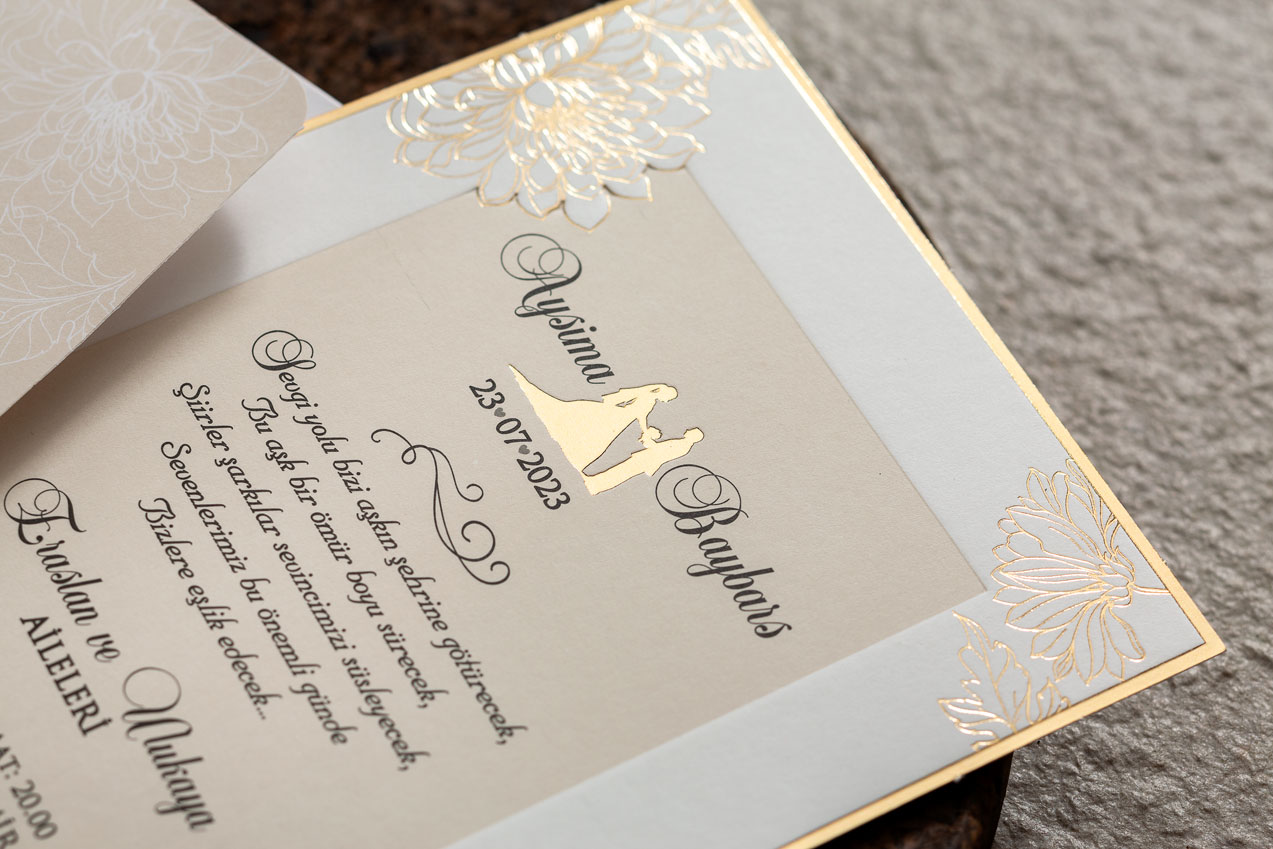 Aysima
Baybars
23•07•2023
Sevgi yolu bizi aşkın şehrine götürecek,
Bu aşk bir ömür boyu sürecek,
Şiirler şarkılar sevincimizi süsleyecek,
Sevenlerimiz bu önemli günde
Bizlere eşlik edecek...
Eraslan ve Nukaya
AİLELERİ
20.00